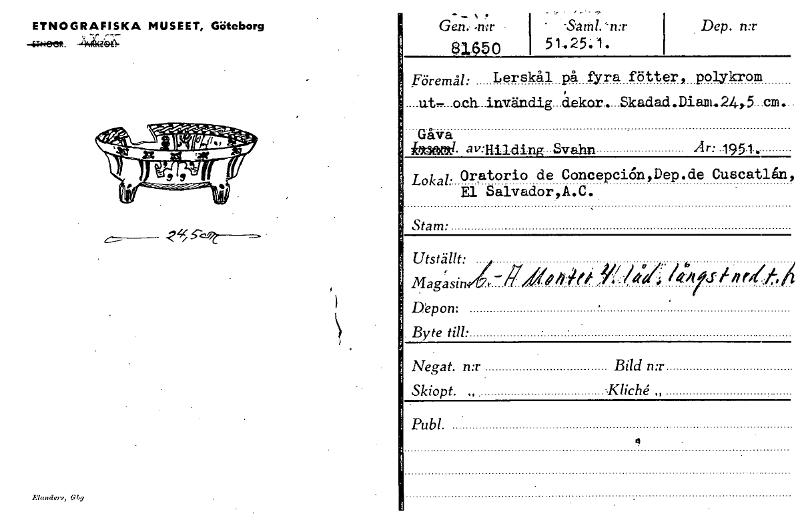 ETNOGRAFISKA MUSEET, Göteborg
24,5cm
Elanders, Gbg
Gen. n:r
Saml. n:r
Dep. n:r
81650
51.25.1.
Föremål: Lerskål på fyra fötter, polykrom
ut- och invändig dekor. Skadad.Diam.24,5 cm.
Gåva
av: Hilding Svahn År: 1951.
Lokal: Oratorio de Concepción,Dep.de Cuscatlán,
El Salvador,A.C.
Stam:
Utställt:
Magasin: Monter 4. låd. långst ned t. h
Depon:
Byte till:
Negat. n:r Bild n:r
Skiopt. „ Kliché „
Publ.